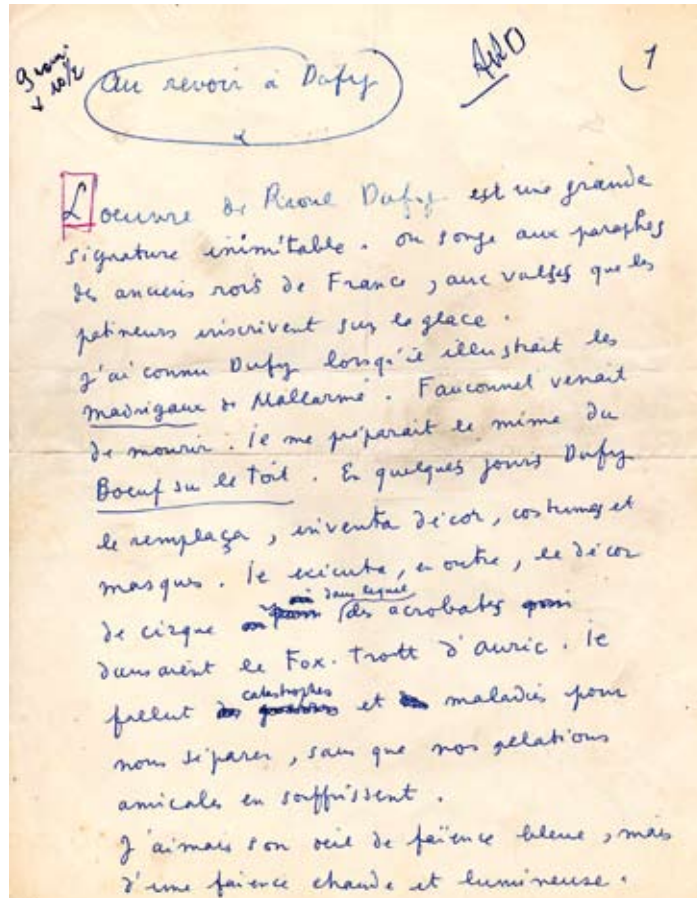 Au revoir à Dufy
1
L'oeuvre de Raoul Dufy est une grande
signature inimitable. on songe aux paraphes
des anciens rois de France, aux valses que les
patineurs inscrivent sur la glace.
J'ai connu Dufy lorsqu'il illustrait les
madrigaux de Mallarmé. Fauconnet venait
de mourir. Il me préparait le mime du
Boeuf sur le Toit. En quelques jours Dufy
le remplaça, inventa décor, costumes et
masques. Il exécuta, en outre, le décor
dans lequel
de cirque des acrobates
dansaient le Fox-Trott d'Auric. Il
catastrophes
fallut et maladies pour
nous séparer, sans que nos relations
amicales en souffrissent.
J'aimais son oeil de faïence bleue, mais
d'une faïence chaude et lumineuse.